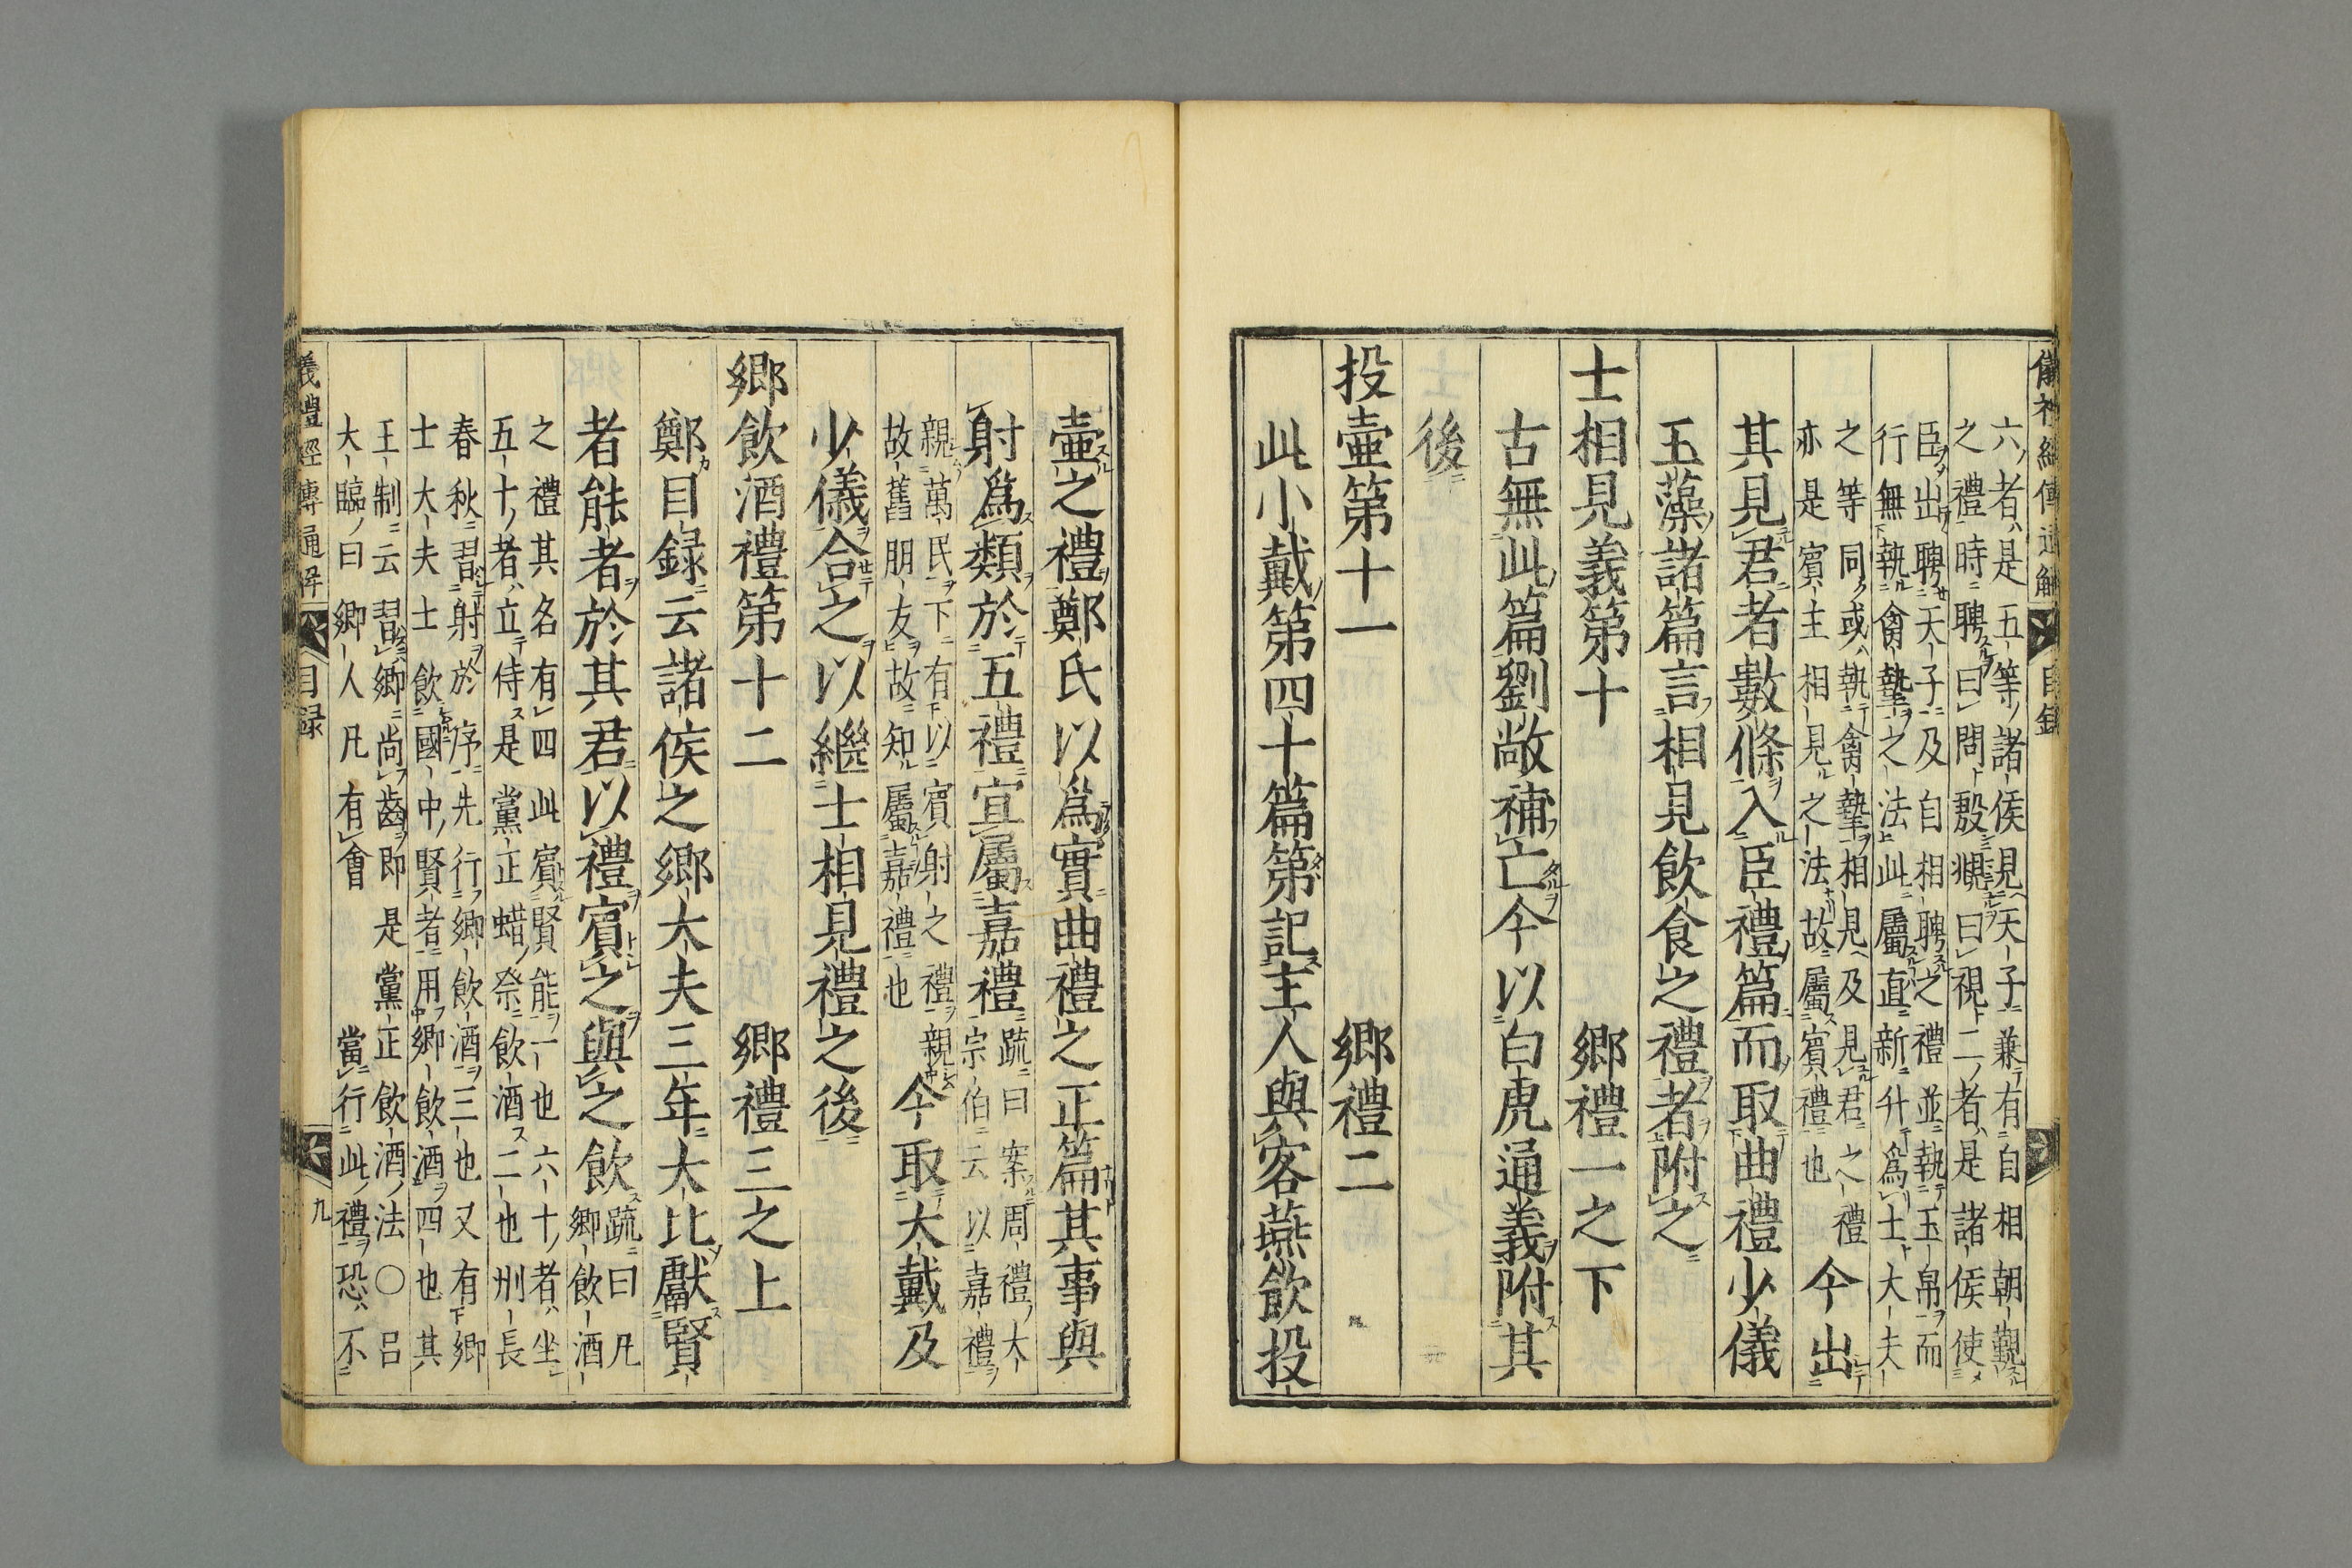 六者是五等諸侯見天子兼有自相朝覲
之禮時聘曰問殷覜曰視二者是諸侯使
臣出聘天子及自相聘之禮並執玉帛而
行無執禽摯之法此屬直新升爲士大夫
之等同或執禽摯相見及見君之禮
亦是賓主相見之法故屬賓禮也
今出
其見君者數條入臣禮篇而取曲禮少儀
玉藻諸篇言相見飲食之禮者附之
士相見義第十 鄉禮一之下
古無此篇劉敞補亡今以白虎通義附其
後
投壷第十一 鄉禮二
此小戴第四十篇第記主人與客燕飲投
儀禮經傳通解 目録
壷之禮鄭氏以爲實曲禮之正篇其事與
射爲類於五禮宜屬嘉禮
疏曰案周禮大
宗伯云以嘉禮
親萬民下有以賓射之禮親
故舊朋友故知屬嘉禮也
今取大戴及
少儀合之以繼士相見禮之後
鄉飲酒禮第十二 鄉禮三之上
鄭目録云諸侯之鄉大夫三年大比獻賢
者能者於其君以禮賓之與之飲
疏曰凡
鄉飲酒
之禮其名有四此賓賢能一也六十者坐
五十者立侍是黨正蜡祭飲酒二也州長
春秋習射於序先行鄉飲酒三也又有鄉
士大夫士飲國中賢者用鄉飲酒四也其
王制云習鄉尚齒即是黨正飲酒法○呂
大臨曰鄉人凡有會當行此禮恐不
儀禮經傳通解 目録 九